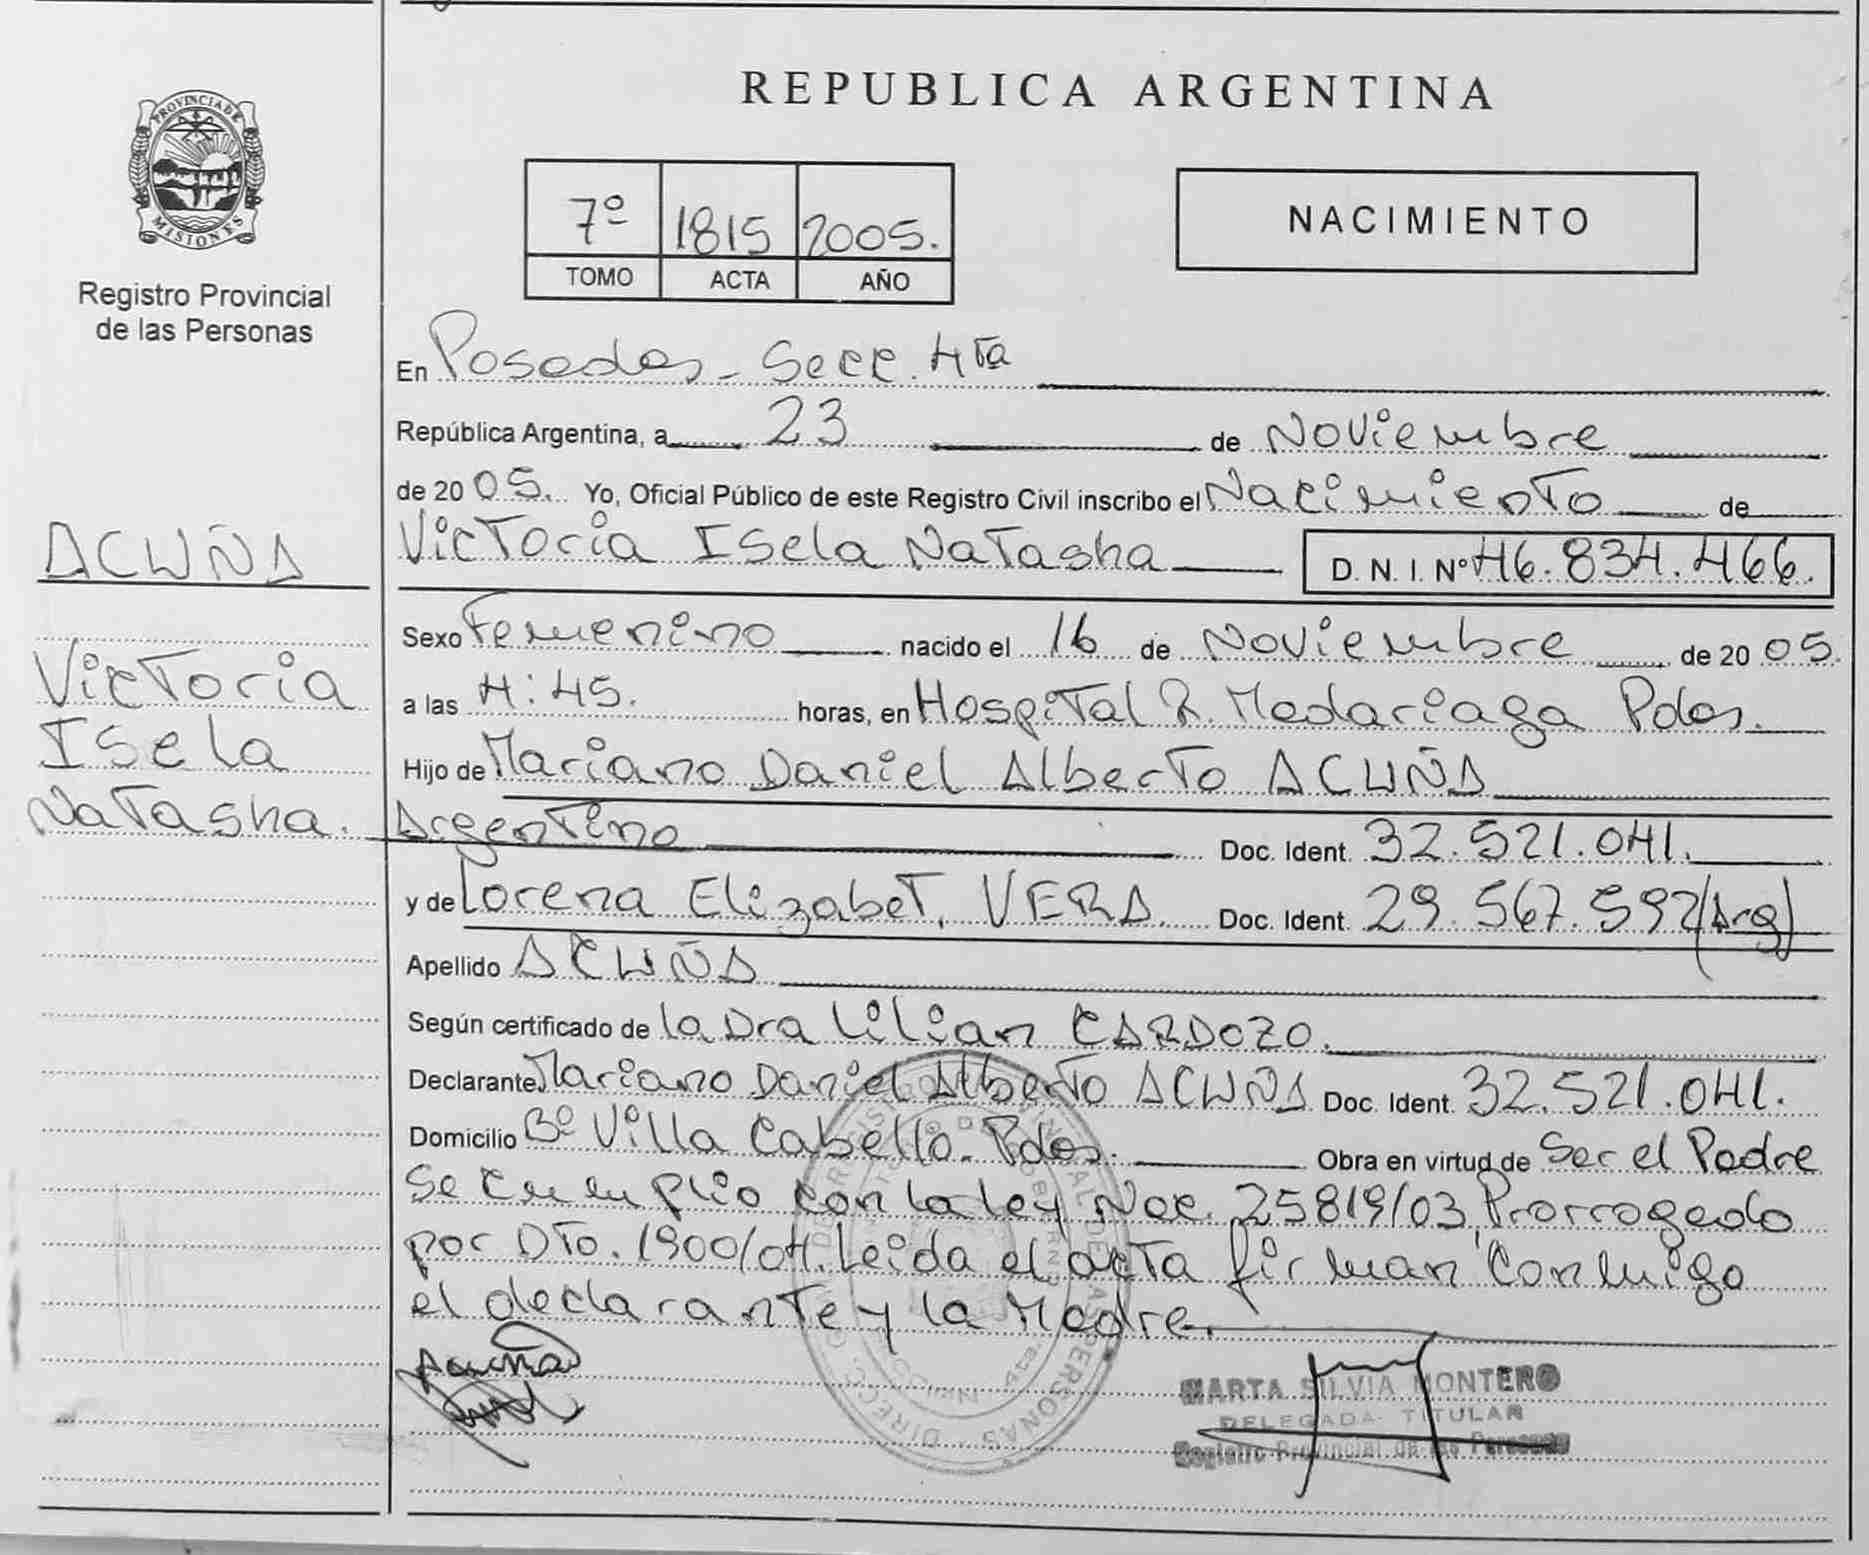 PROVINCIA DE
MISIONES
Registro Provincial
de las Personas
ACUÑA
Victoria
Isela
Natasha.
REPUBLICA ARGENTINA
7º 1815 2005.
TOMO ACTA AÑO
NACIMIENTO
En Posadas - Secc. 4ta
República Argentina, a 23 de Noviembre
de 2005. Yo, Oficial Público de este Registro Civil inscribo el Nacimiento de
Victoria Isela Natasha D. N. I. Nº 46.834.466.
Sexo Femenino nacido el 16 de Noviembre de 2005.
a las 4:45. horas, en Hospital R. Madariaga Pdas.
Hijo de Mariano Daniel Alberto ACUÑA
Argentino Doc. Ident. 32.521.041.
y de Lorena Elizabet, VERA. Doc. Ident. 29.567.592 (Arg)
Apellido ACUÑA
Según certificado de la Dra Lilian CARDOZO.
Declarante Mariano Daniel Alberto ACUÑA Doc. Ident. 32.521.041.
Domicilio Bº Villa Cabello - Pdas. Obra en virtud de Ser el Padre
Se cumplio con la ley Nac. 25819/03, Prorrogado
por Dto. 1900/04. Leida el acta firman conmigo
el declarante y la Madre.
Acuña
MARTA SILVIA MONTERO
DELEGADA TITULAR
Registro Provincial de las Personas